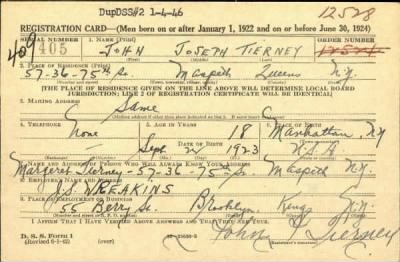 DupDSS#2 1-4-46
12528
REGISTRATION CARD—(Men born on or after January 1, 1922 and on or before June 30, 1924)
SERIAL NUMBER 1. NAME (Print) ORDER NUMBER
409 405 JOHN JOSEPH TIERNEY 12524
(First) (Middle) (Last)
2. PLACE OF RESIDENCE (Print)
57-36-75th St. Maspeth Queens N.Y.
(Number and street) (Town, township, village, or city) (County) (State)
[THE PLACE OF RESIDENCE GIVEN ON THE LINE ABOVE WILL DETERMINE LOCAL BOARD
JURISDICTION; LINE 2 OF REGISTRATION CERTIFICATE WILL BE IDENTICAL]
3. MAILING ADDRESS
Same
4. TELEPHONE 5. AGE IN YEARS 6. PLACE OF BIRTH
None 18 Manhattan, N.Y.
DATE OF BIRTH
Sept. 1923 U.S.A.
7. NAME AND ADDRESS OF PERSON WHO WILL ALWAYS KNOW YOUR ADDRESS
Margaret Tierney-57-36-75th St. Maspeth N.Y.
8. EMPLOYER'S NAME AND ADDRESS
J.S. WREAKINS
9. PLACE OF EMPLOYMENT OR BUSINESS
55 Berry St. Brooklyn Kings N.Y.
(Number and street or R. F. D. number) (Town) (County) (State)
I AFFIRM THAT I HAVE VERIFIED ABOVE ANSWERS AND THAT THEY ARE TRUE.
D. S. S. Form 1
(Revised 6-1-42) (over)
John J Tierney
(Registrant's signature)